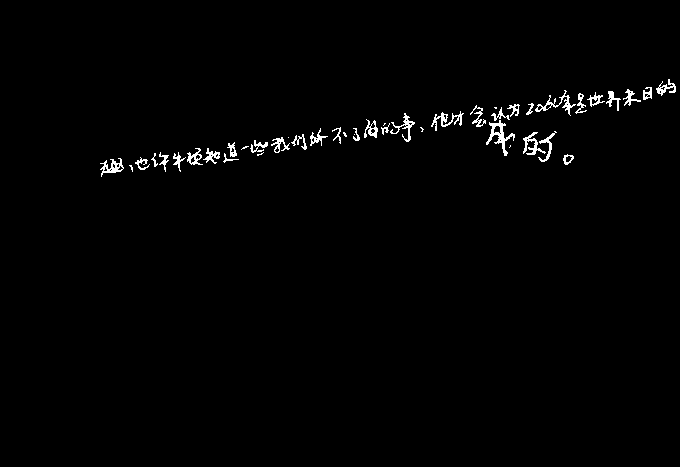 趣,也许牛顿知道一些我们所不了解的事,他才会认为2060年是世界末日的
成的。